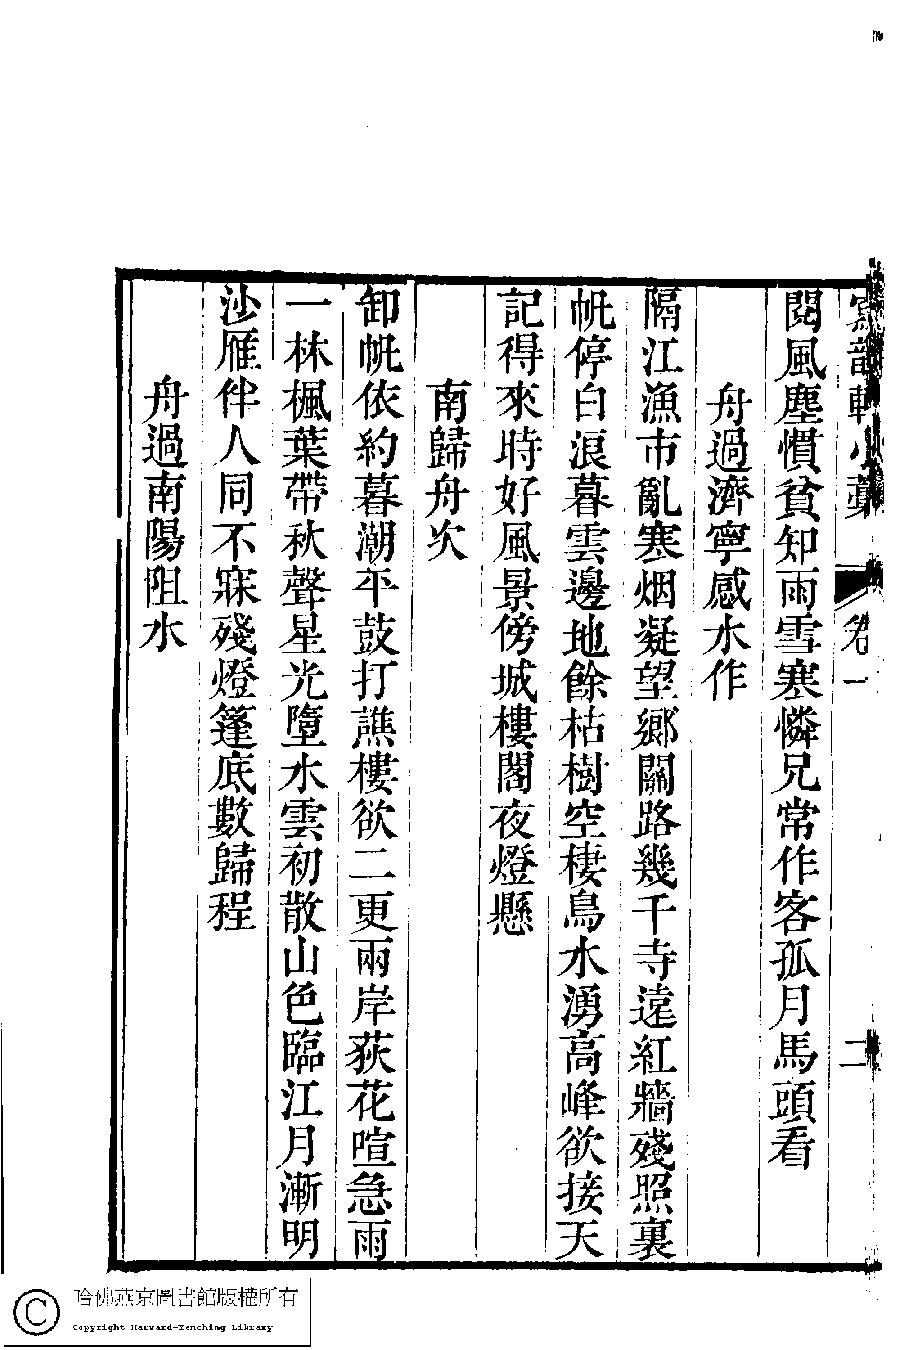 寫韻軒小藁 卷一 二
閱風塵慣貧知雨雪寒憐兄常作客孤月馬頭看
舟過濟寧感水作
隔江漁市亂寒烟凝望鄉關路幾千寺遠紅牆殘照裏
帆停白浪暮雲邊地餘枯樹空棲鳥水湧高峰欲接天
記得來時好風景傍城樓閣夜燈懸
南歸舟次
卸帆依約暮潮平鼓打譙樓欲二更兩岸荻花喧急雨
一林楓葉帶秋聲星光墮水雲初散山色臨江月漸明
沙雁伴人同不寐殘燈篷底數歸程
舟過南陽阻水
哈佛燕京圖書館版權所有
Copyright Harvard-Yenching Library